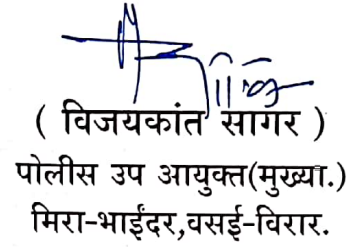 ( विजयकांत सागर )
पोलीस उप आयुक्त(मुख्या.)
मिरा-भाईंदर,वसई-विरार.